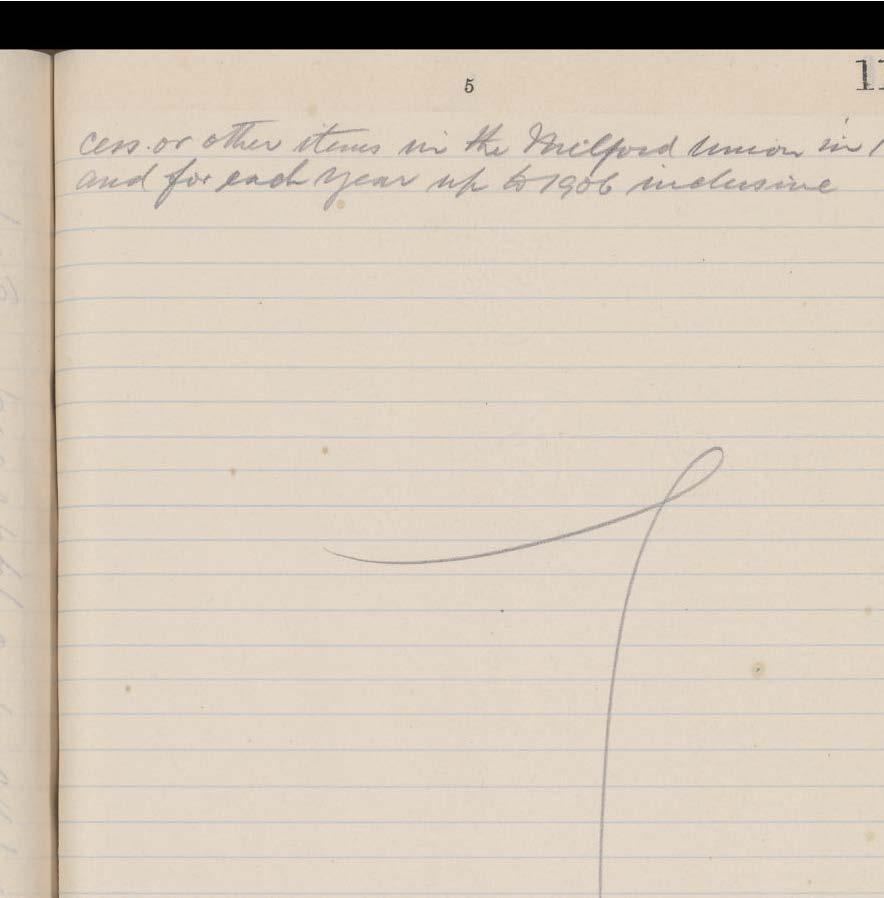 5
11
cess. or other items in the Milford Union in 1
and for each year up to 1906 inclusive